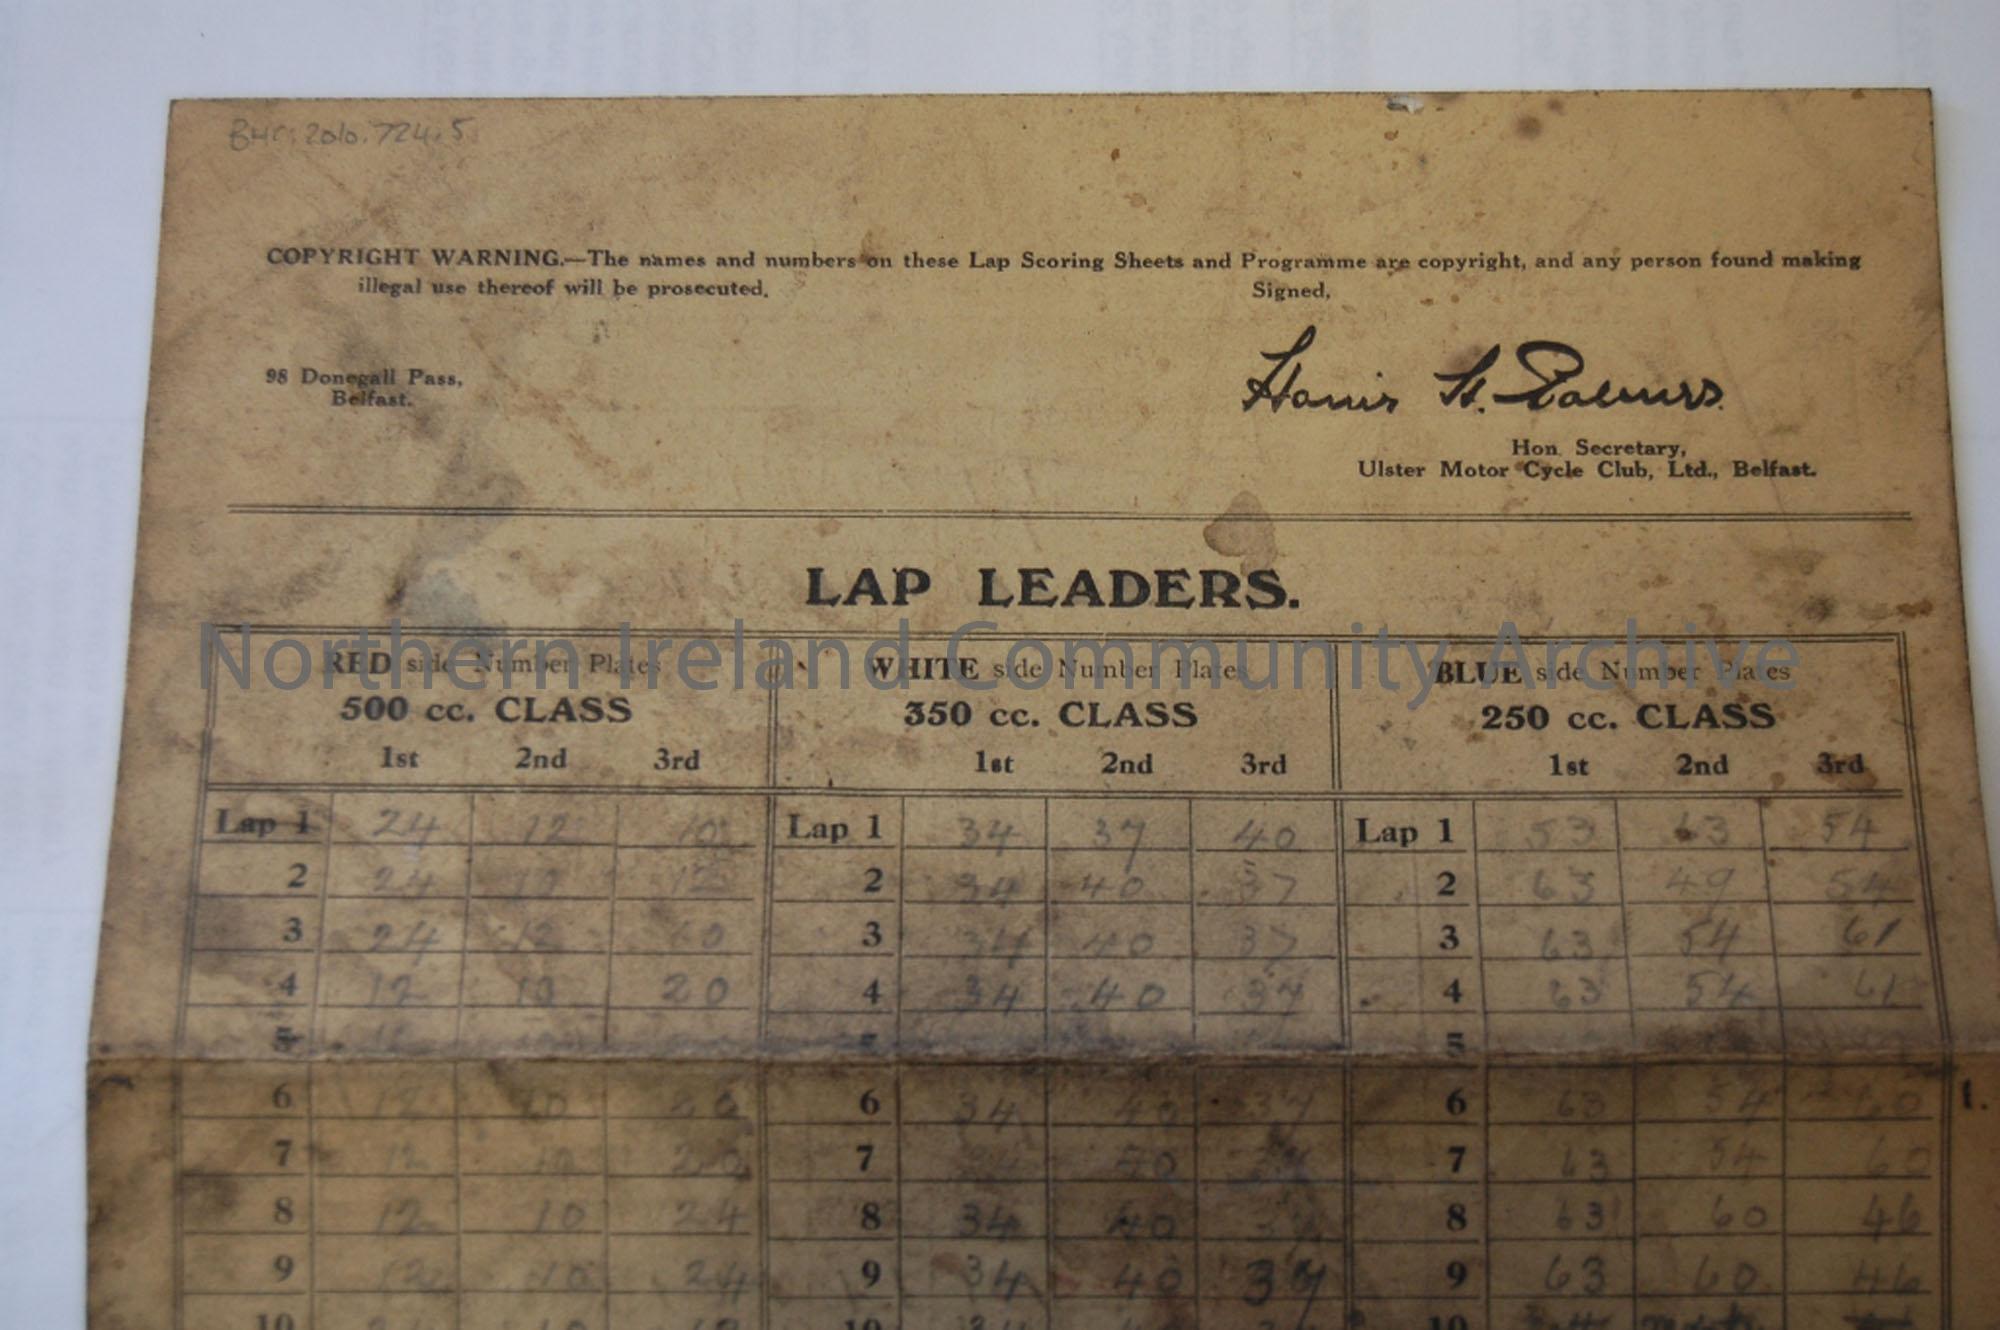 BHC:2010.724.5
COPYRIGHT WARNING.—The names and numbers on these Lap Scoring Sheets and Programme are copyright, and any person found making
illegal use thereof will be prosecuted.
Signed,
98 Donegall Pass,
Belfast.
Hon. Secretary,
Ulster Motor Cycle Club, Ltd., Belfast.
LAP LEADERS.
Northern Ireland Community Archive
RED side Number Plates WHITE side Number Plates BLUE side Number Plates
500 cc. CLASS 350 cc. CLASS 250 cc. CLASS
1st 2nd 3rd 1st 2nd 3rd 1st 2nd 3rd
Lap 1 24 12 10 Lap 1 34 37 40 Lap 1 53 63 54
2 24 12 2 34 40 37 2 63 49 54
3 24 12 10 3 34 40 37 3 63 54 61
4 12 10 20 4 34 40 37 4 63 54 61
5 5 5
6 12 10 20 6 34 40 37 6 63 54 60 t.
7 12 10 20 7 34 40 7 63 54 60
8 12 10 24 8 34 40 37 8 63 60 46
9 12 10 24 9 34 40 37 9 63 60 46
10 10 10